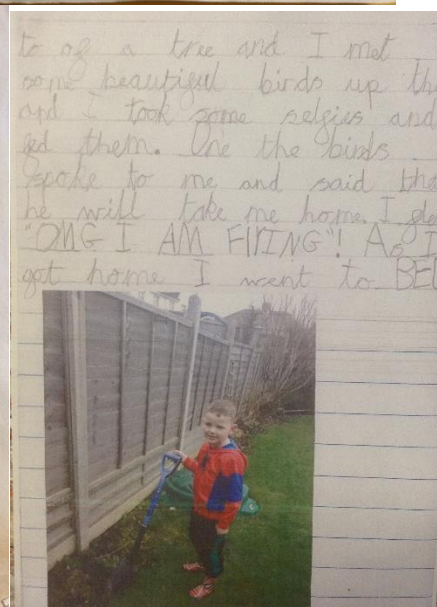 to of a tree and I met
some beautiful birds up the
and I took some selfies and
fed them. One the birds
spoke to me and said tha
he will take me home. I
"OMG I AM FlYING"! As I
got home I went to BE